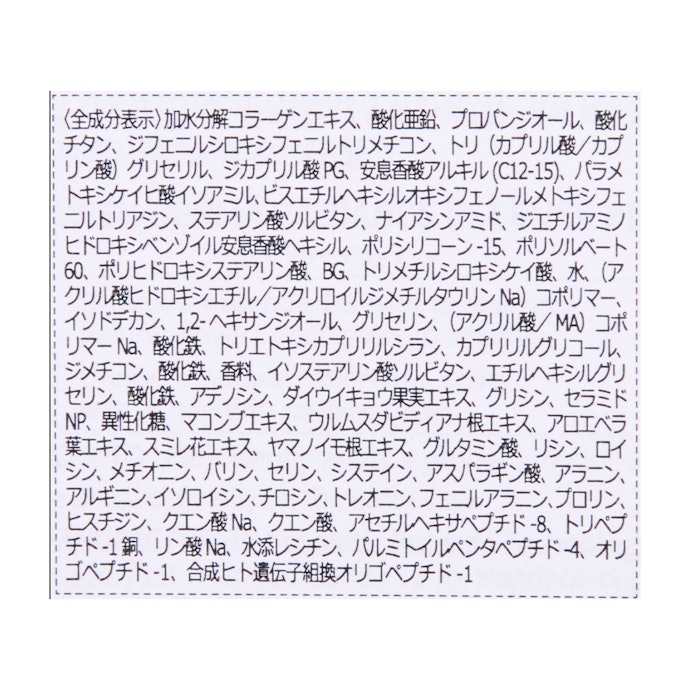 〈全成分表示〉加水分解コラーゲンエキス、酸化亜鉛、プロパンジオール、酸化
チタン、ジフェニルシロキシフェニルトリメチコン、トリ（カプリル酸／カプ
リン酸）グリセリル、ジカプリル酸PG、安息香酸アルキル(C12-15)、パラメ
トキシケイヒ酸イソアミル、ビスエチルヘキシルオキシフェノールメトキシフェ
ニルトリアジン、ステアリン酸ソルビタン、ナイアシンアミド、ジエチルアミノ
ヒドロキシベンゾイル安息香酸ヘキシル、ポリシリコーン-15、ポリソルベート
60、ポリヒドロキシステアリン酸、BG、トリメチルシロキシケイ酸、水、（ア
クリル酸ヒドロキシエチル／アクリロイルジメチルタウリンNa）コポリマー、
イソドデカン、1,2-ヘキサンジオール、グリセリン、（アクリル酸／MA）コポ
リマーNa、酸化鉄、トリエトキシカプリリルシラン、カプリリルグリコール、
ジメチコン、酸化鉄、香料、イソステアリン酸ソルビタン、エチルヘキシルグリ
セリン、酸化鉄、アデノシン、ダイウイキョウ果実エキス、グリシン、セラミド
NP、異性化糖、マコンブエキス、ウルムスダビディアナ根エキス、アロエベラ
葉エキス、スミレ花エキス、ヤマノイモ根エキス、グルタミン酸、リシン、ロイ
シン、メチオニン、バリン、セリン、システイン、アスパラギン酸、アラニン、
アルギニン、イソロイシン、チロシン、トレオニン、フェニルアラニン、プロリン、
ヒスチジン、クエン酸Na、クエン酸、アセチルヘキサペプチド-8、トリペプ
チド-1銅、リン酸Na、水添レシチン、パルミトイルペンタペプチド-4、オリ
ゴペプチド-1、合成ヒト遺伝子組換オリゴペプチド-1